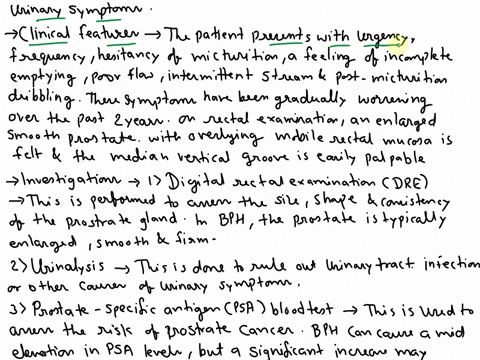 Urinary Symptoms.
→ Clinical features → The patient presents with urgency,
frequency, hesitancy of micturition, a feeling of incomplete
emptying, poor flow, intermittent stream & post-micturition
dribbling. These symptoms have been gradually worsening
over the past 2 years. On rectal examination, an enlarged
smooth prostate. with overlying mobile rectal mucosa is
felt & the median vertical groove is easily palpable
→ Investigation → 1) Digital rectal examination (DRE)
→ This is performed to assess the size, shape & consistency
of the prostrate gland. In BPH, the prostate is typically
enlarged, smooth & firm.
2) Urinalysis → This is done to rule out Urinary tract infection
or other causes of Urinary symptoms.
3) Prostate-specific antigen (PSA) blood test → This is used to
assess the risk of prostate cancer. BPH can cause a mid
elevation in PSA levels, but a significant increase may